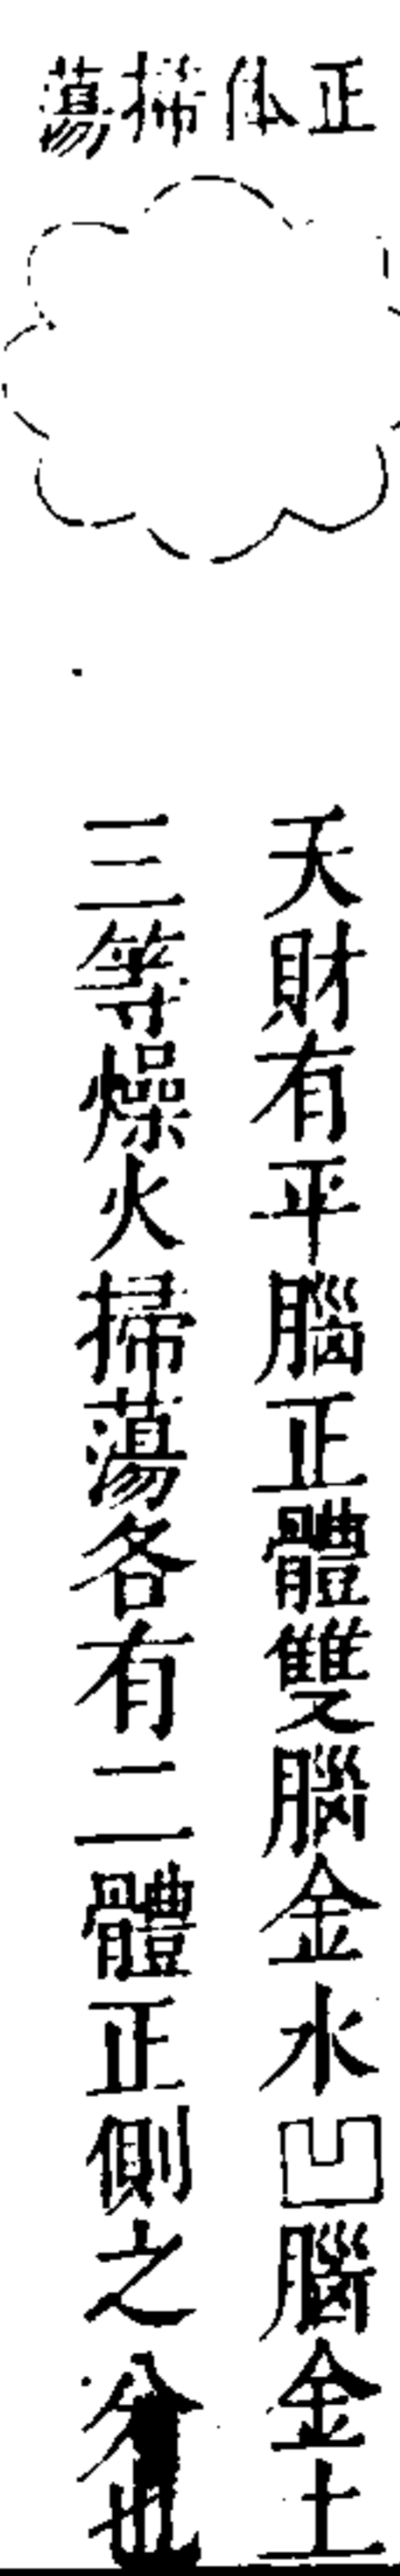 正体掃蕩
天財有平腦正體雙腦金水凹腦金土
三等燥火掃蕩各有二體正側之分也